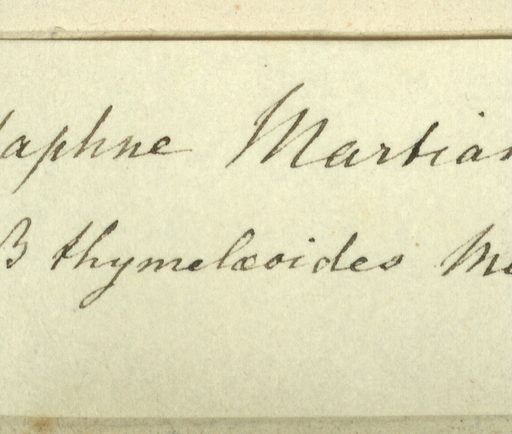 daphne Martian
β thymelæoides Me